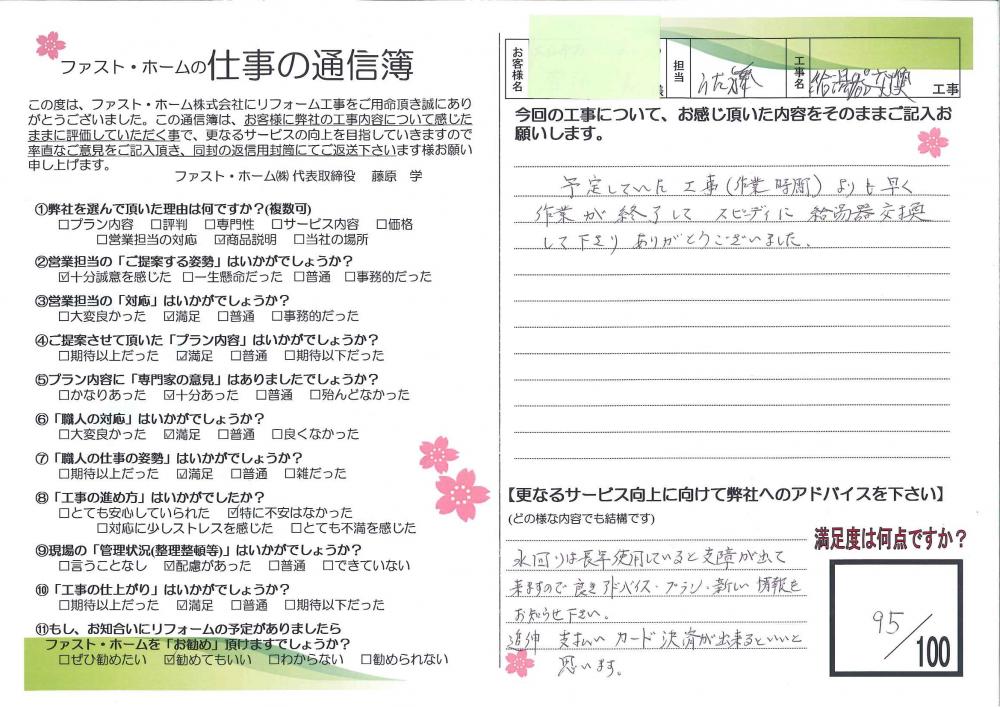 ファスト・ホームの仕事の通信簿
この度は、ファスト・ホーム株式会社にリフォーム工事をご用命頂き誠にあり
がとうございました。この通信簿は、お客様に弊社の工事内容について感じた
ままに評価していただく事で、更なるサービスの向上を目指していきますので
率直なご意見をご記入頂き、同封の返信用封筒にてご返送下さいます様お願い
申し上げます。
ファスト・ホーム㈱ 代表取締役 藤原 学
①弊社を選んで頂いた理由は何ですか?(複数可)
□プラン内容 □評判 □専門性 □サービス内容 □価格
□営業担当の対応 ☑商品説明 □当社の場所
②営業担当の「ご提案する姿勢」はいかがでしょうか?
☑十分誠意を感じた □一生懸命だった □普通 □事務的だった
③営業担当の「対応」はいかがでしょうか?
□大変良かった ☑満足 □普通 □事務的だった
④ご提案させて頂いた「プラン内容」はいかがでしょうか?
□期待以上だった ☑満足 □普通 □期待以下だった
⑤プラン内容に「専門家の意見」はありましたでしょうか?
□かなりあった ☑十分あった □普通 □殆んどなかった
⑥「職人の対応」はいかがでしょうか?
□大変良かった ☑満足 □普通 □良くなかった
⑦「職人の仕事の姿勢」はいかがでしょうか?
□期待以上だった ☑満足 □普通 □雑だった
⑧「工事の進め方」はいかがでしたか?
□とても安心していられた ☑特に不安はなかった
□対応に少しストレスを感じた □とても不満を感じた
⑨現場の「管理状況(整理整頓等)」はいかがでしょうか?
□言うことなし ☑配慮があった □普通 □できていない
⑩「工事の仕上がり」はいかがでしょうか?
□期待以上だった ☑満足 □普通 □期待以下だった
⑪もし、お知合いにリフォームの予定がありましたら
ファスト・ホームを「お勧め」頂けますでしょうか?
□ぜひ勧めたい ☑勧めてもいい □わからない □勧められない
お客様名 様 担当 工事名 給湯器交換 工事
今回の工事について、お感じ頂いた内容をそのままご記入お
願いします。
予定していた工事(作業時間)よりも早く
作業が終了して スピーディに 給湯器交換
して下さり ありがとうございました。
【更なるサービス向上に向けて弊社へのアドバイスを下さい】
(どの様な内容でも結構です)
水回りは長年使用していると支障が出て
来ますので良きアドバイス・プラン・新しい情報を
お知らせ下さい。
追伸 支払い カード決済が出来るといいと
思います。
満足度は何点ですか?
95/100